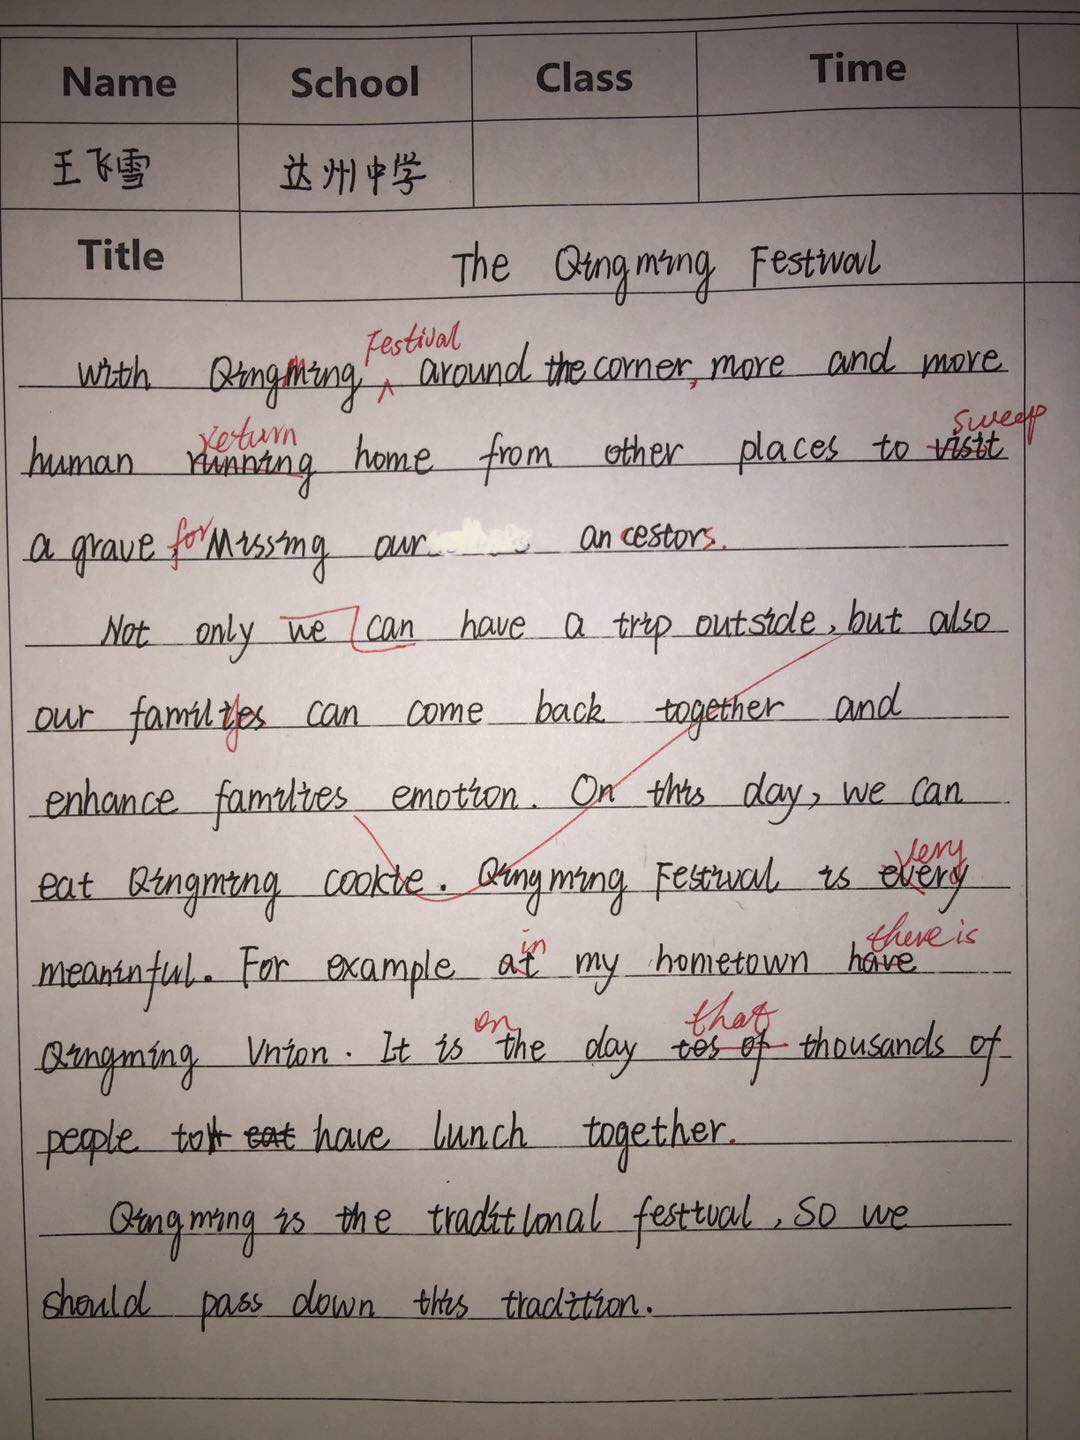 Name School Class Time
王飞雪 达州中学
Title The Qingming Festival
Festival
With Qingming around the corner, more and more
return sweep
human running home from other places to visit
a grave for Missing our ancestors.
Not only we can have a trip outside, but also
our families can come back together and
enhance families emotion. On this day, we can
eat Qingming cookie. Qingming Festival is every
very
meaninful. For example at my hometown have
in there is
Qingming Union. It is the day of thousands of
on that
people to eat have lunch together.
Qingming is the traditional festival, So we
should pass down this tradition.